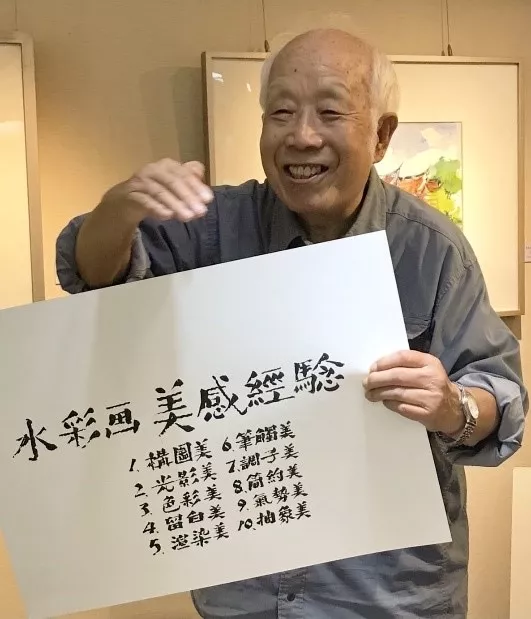 水彩画美感經驗
1. 構圖美
2. 光影美
3. 色彩美
4. 留白美
5. 渲染美
6. 筆觸美
7. 調子美
8. 簡約美
9. 氣勢美
10. 抽象美